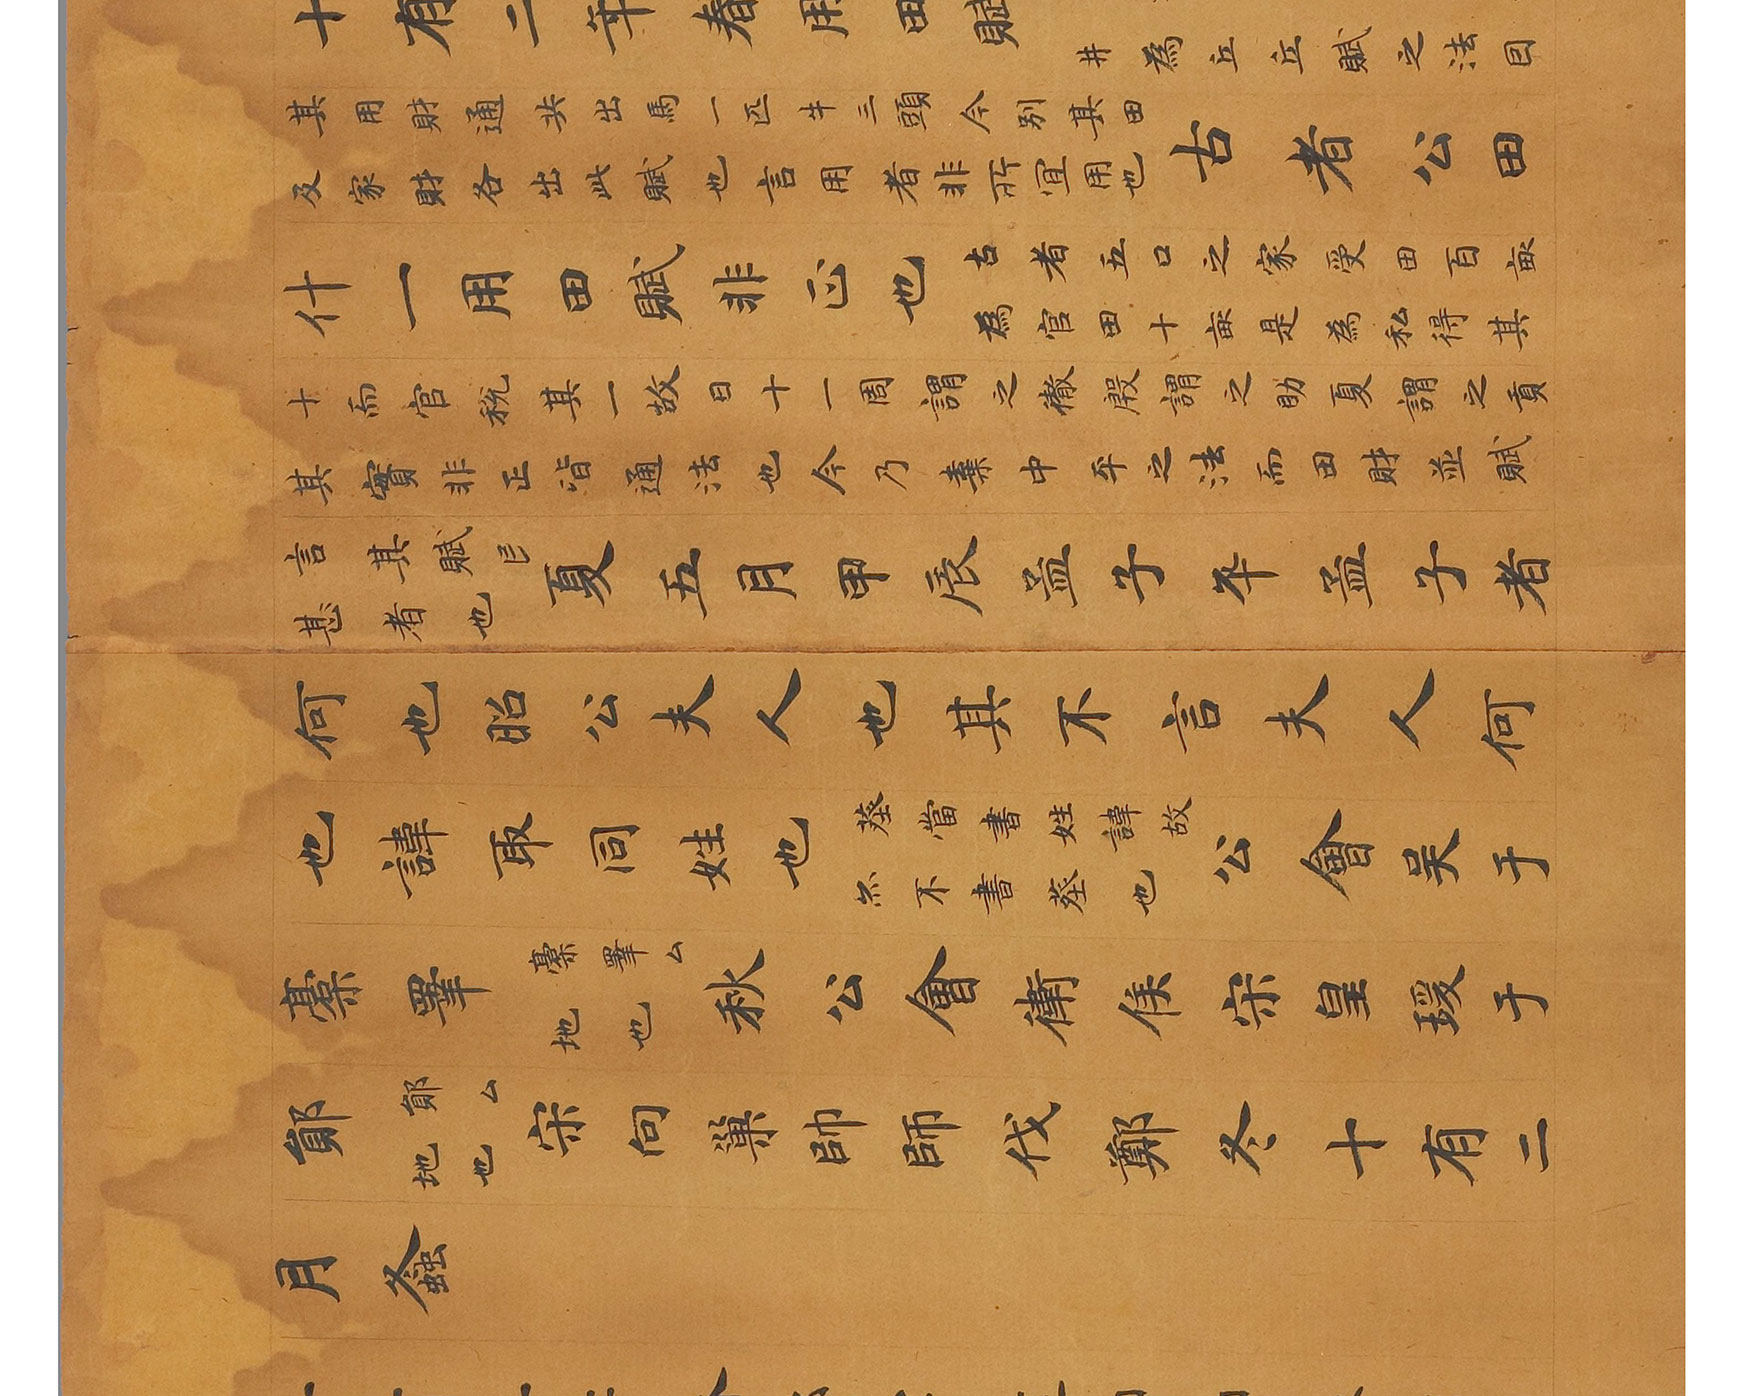 十有二年春用田賦
井為丘丘賦之法因
其用財通共出馬一匹牛三頭今別其田
及家財各出此賦也言用者非所宜用也
古者公田
什一用田賦非正也
古者五口之家受田百畝
為官田十畝是為私得其
十而官稅其一故曰十一周謂之徹殷謂之助夏謂之貢
其實非正皆通法也今乃棄中平之法而田財並賦
言其賦
甚者也
夏五月甲辰孟子卒孟子者
何也昭公夫人也其不言夫人何
也諱取同姓也
葬當書姓諱故
亦不書葬也
公會吴于
橐睪
橐睪厶
地也
秋公會衛侯宋皇瑗于
鄖
鄖厶
地也
宋向巢帥師伐鄭冬十有二
月螽